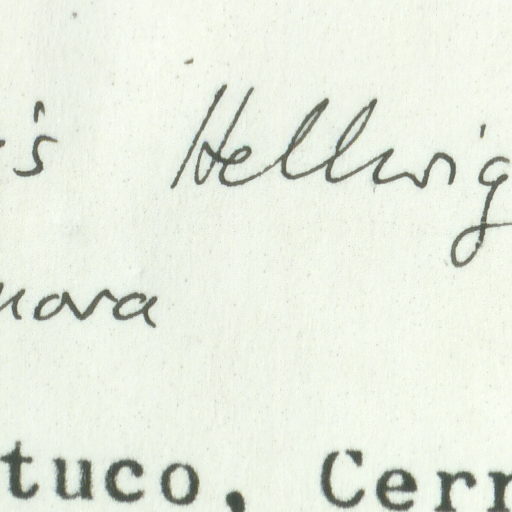 is Hellwig
nova
tuco, Cerr